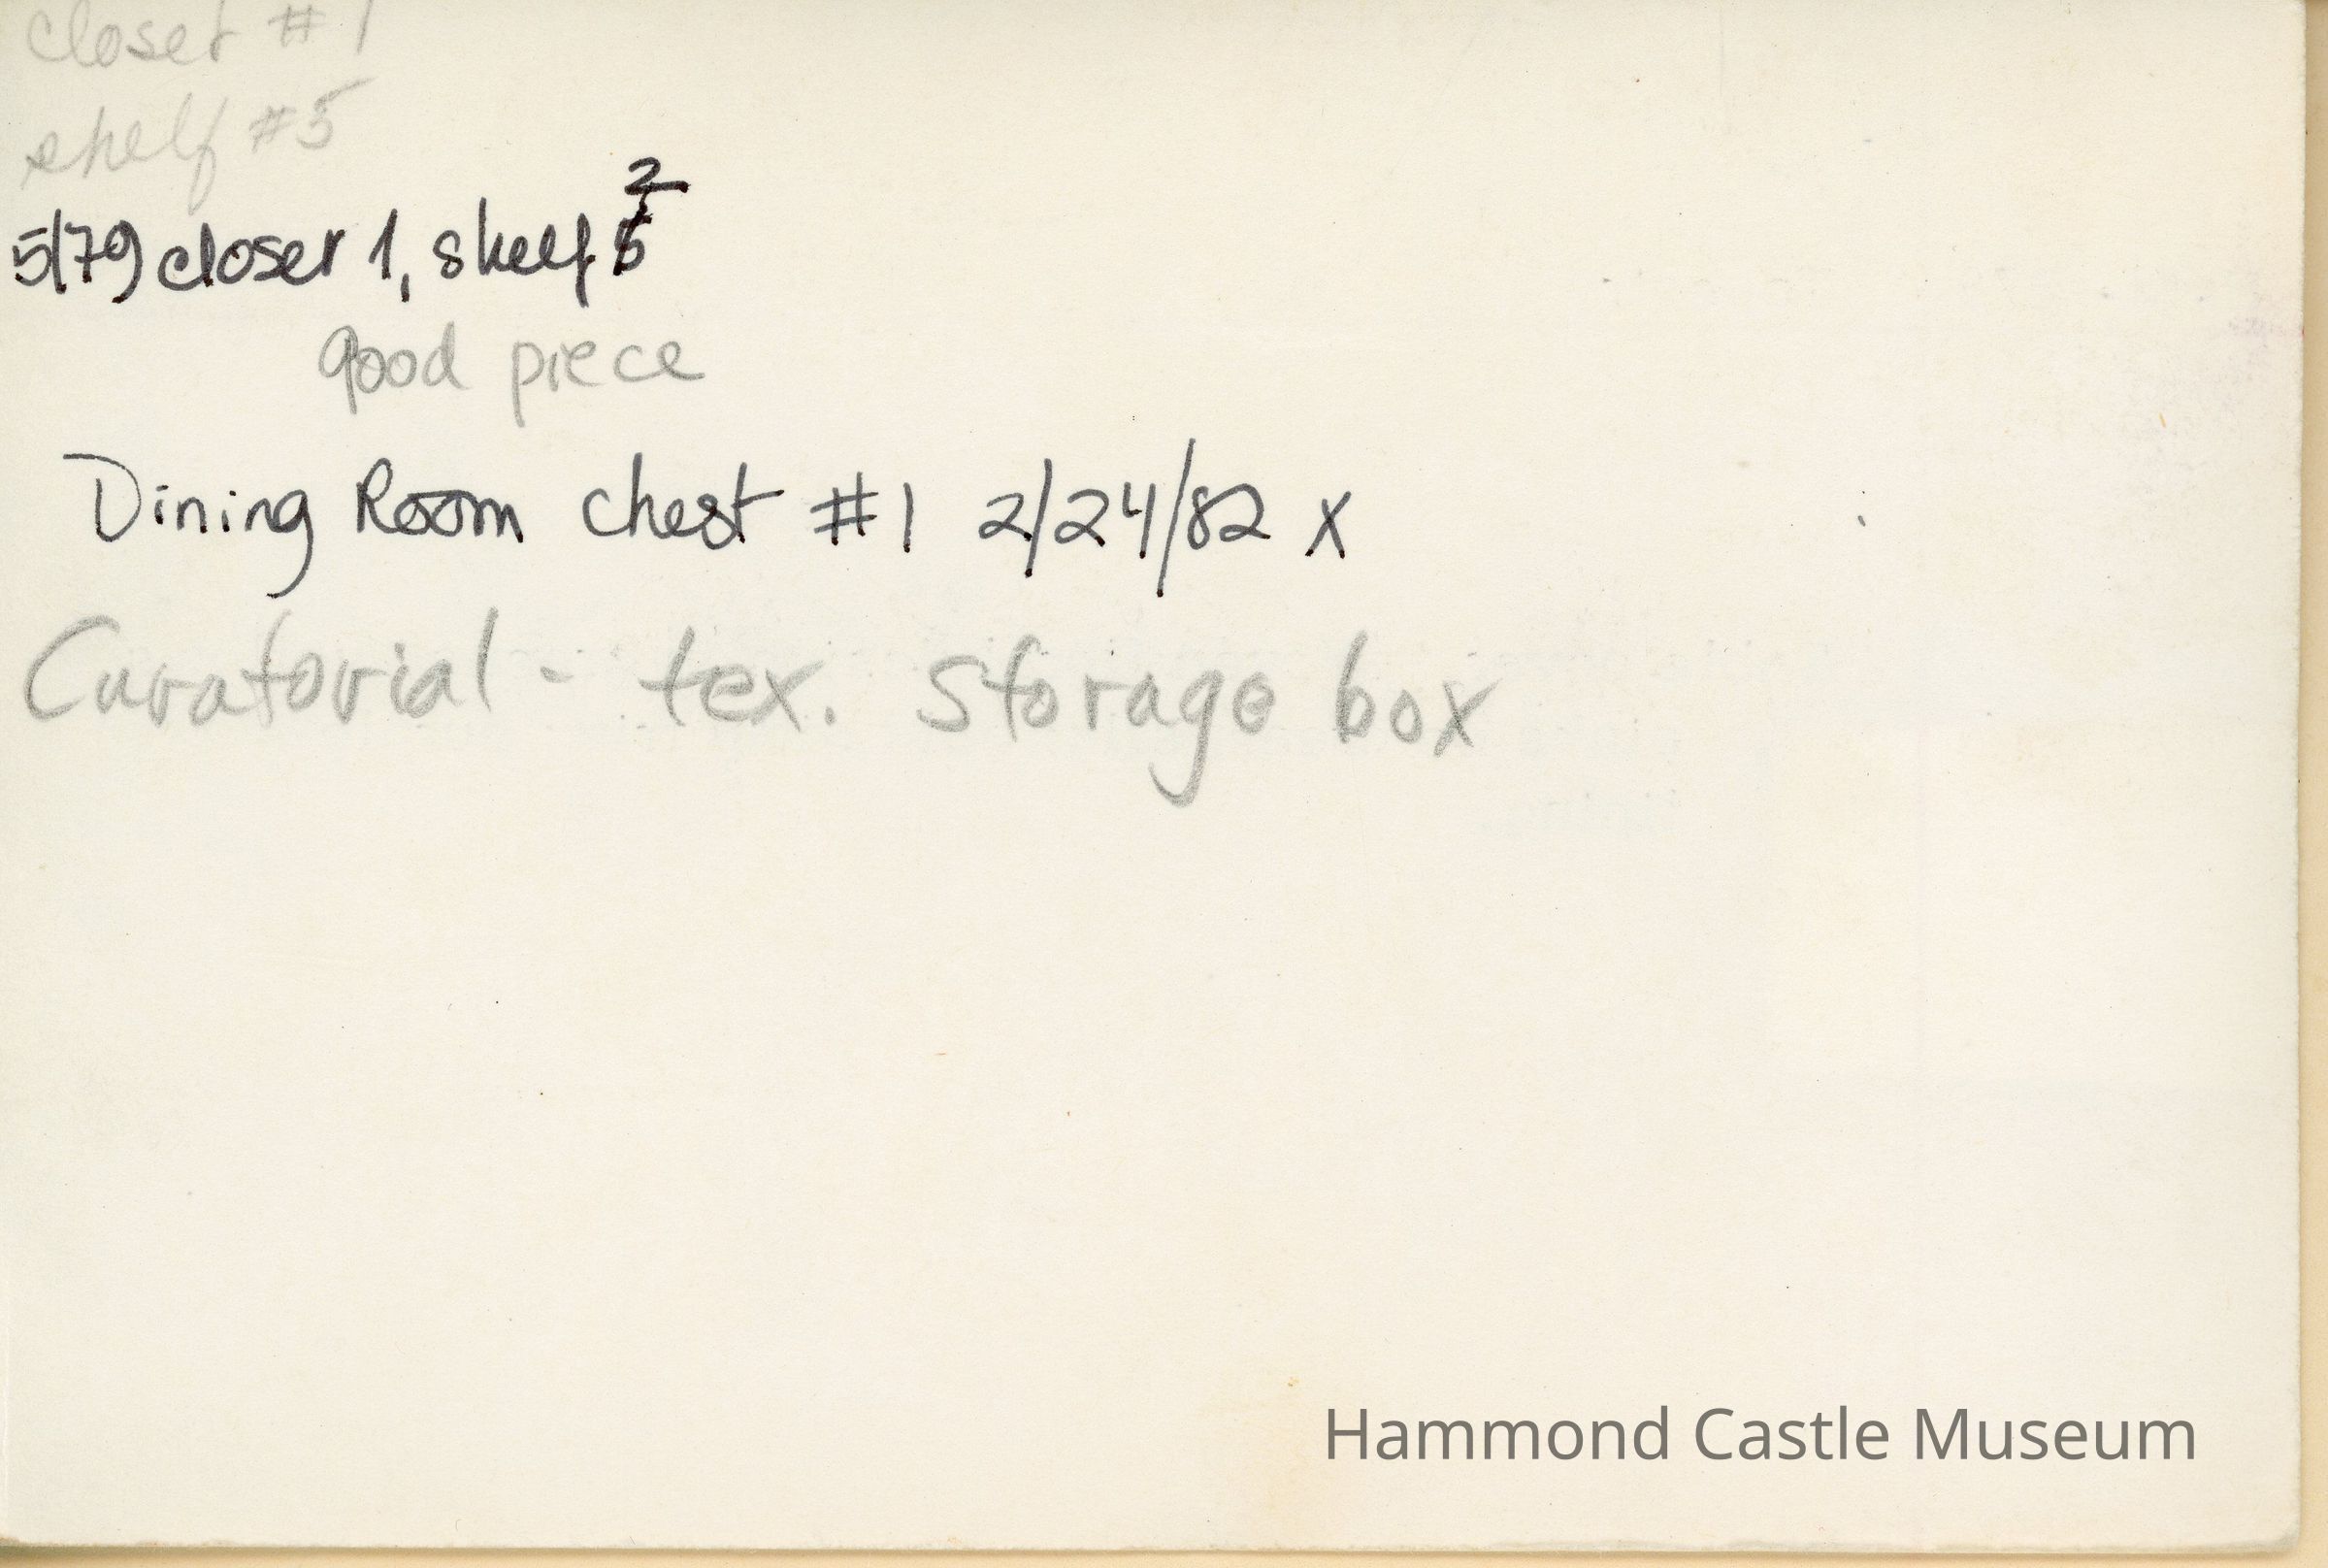 closet #1
shelf #5
5/79 closet 1, shelf 2
good piece
Dining Room chest #1 2/24/82 x
Curatorial - tex. storage box
Hammond Castle Museum